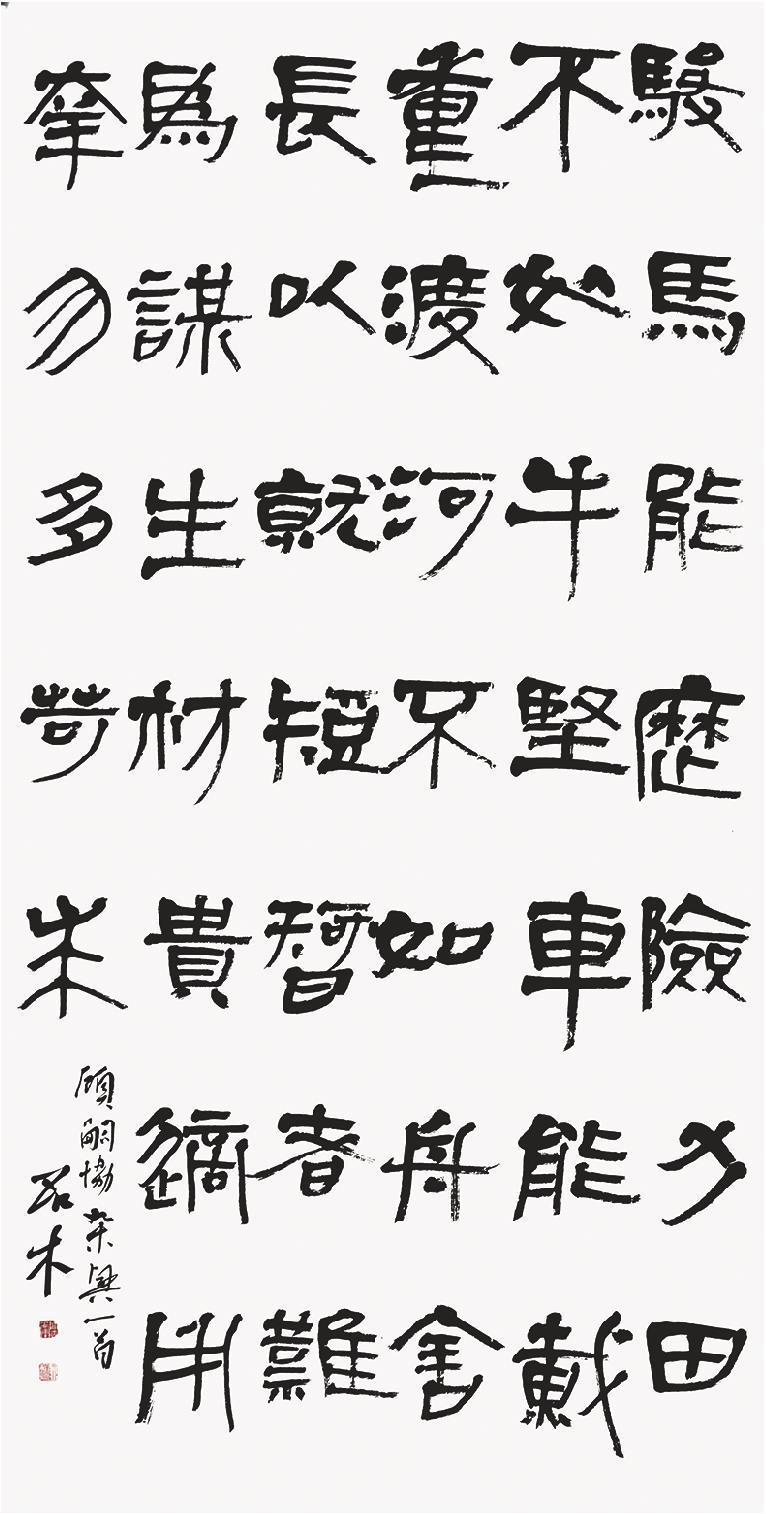 駿馬能歷險力田
不如牛堅車能載
重渡河不如舟舍
長以就短智者難
爲謀生材貴適用
幸勿多苛求
顧嗣協雜興一首
木